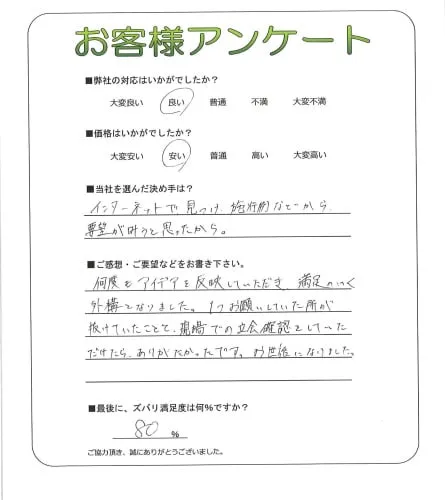 お客様アンケート
■弊社の対応はいかがでしたか？
大変良い 良い 普通 不満 大変不満
■価格はいかがでしたか？
大変安い 安い 普通 高い 大変高い
■当社を選んだ決め手は？
インターネットで見つけ、施行例などから、
要望が叶うと思ったから。
■ご感想・ご要望などをお書き下さい。
何度もアイデアを反映していただき、満足のいく
外構となりました。1つお願いしていた所が
抜けていたことと、現場での立会確認をしていた
だけたら、ありがたかったです。お世話になりました。
■最後に、ズバリ満足度は何％ですか？
80 %
ご協力頂き、誠にありがとうございました。